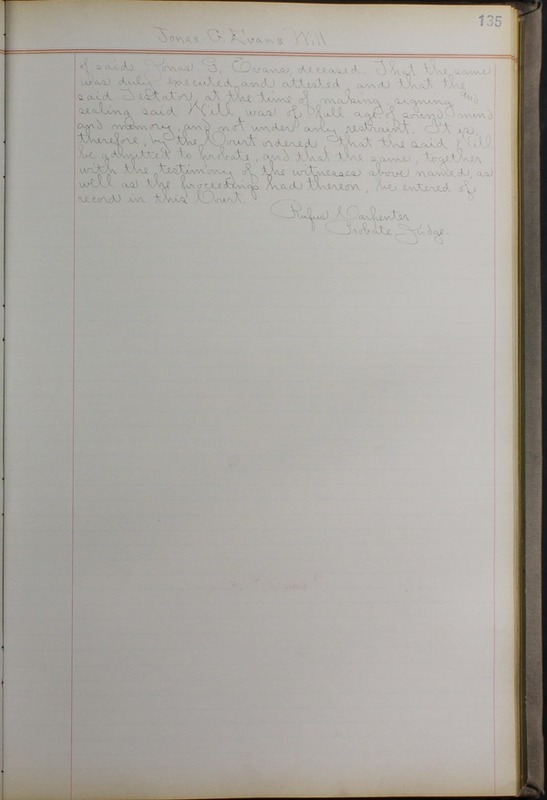 135
Jonas G. Evans Will
of said Jonas G. Evans deceased. That the same
was duly executed and attested and that the
said Testator, at the time of making signing and
sealing said Will, was of full age of sound mind
and memory, and not under any restraint. It is
therefore, by the Court ordered that the said Will
be admitted to probate, and that the same, together
with the testimony of the witnesses above named, as
well as the proceedings had thereon, be entered of
record in this Court.
Rufus Carpenter
Probate Judge.